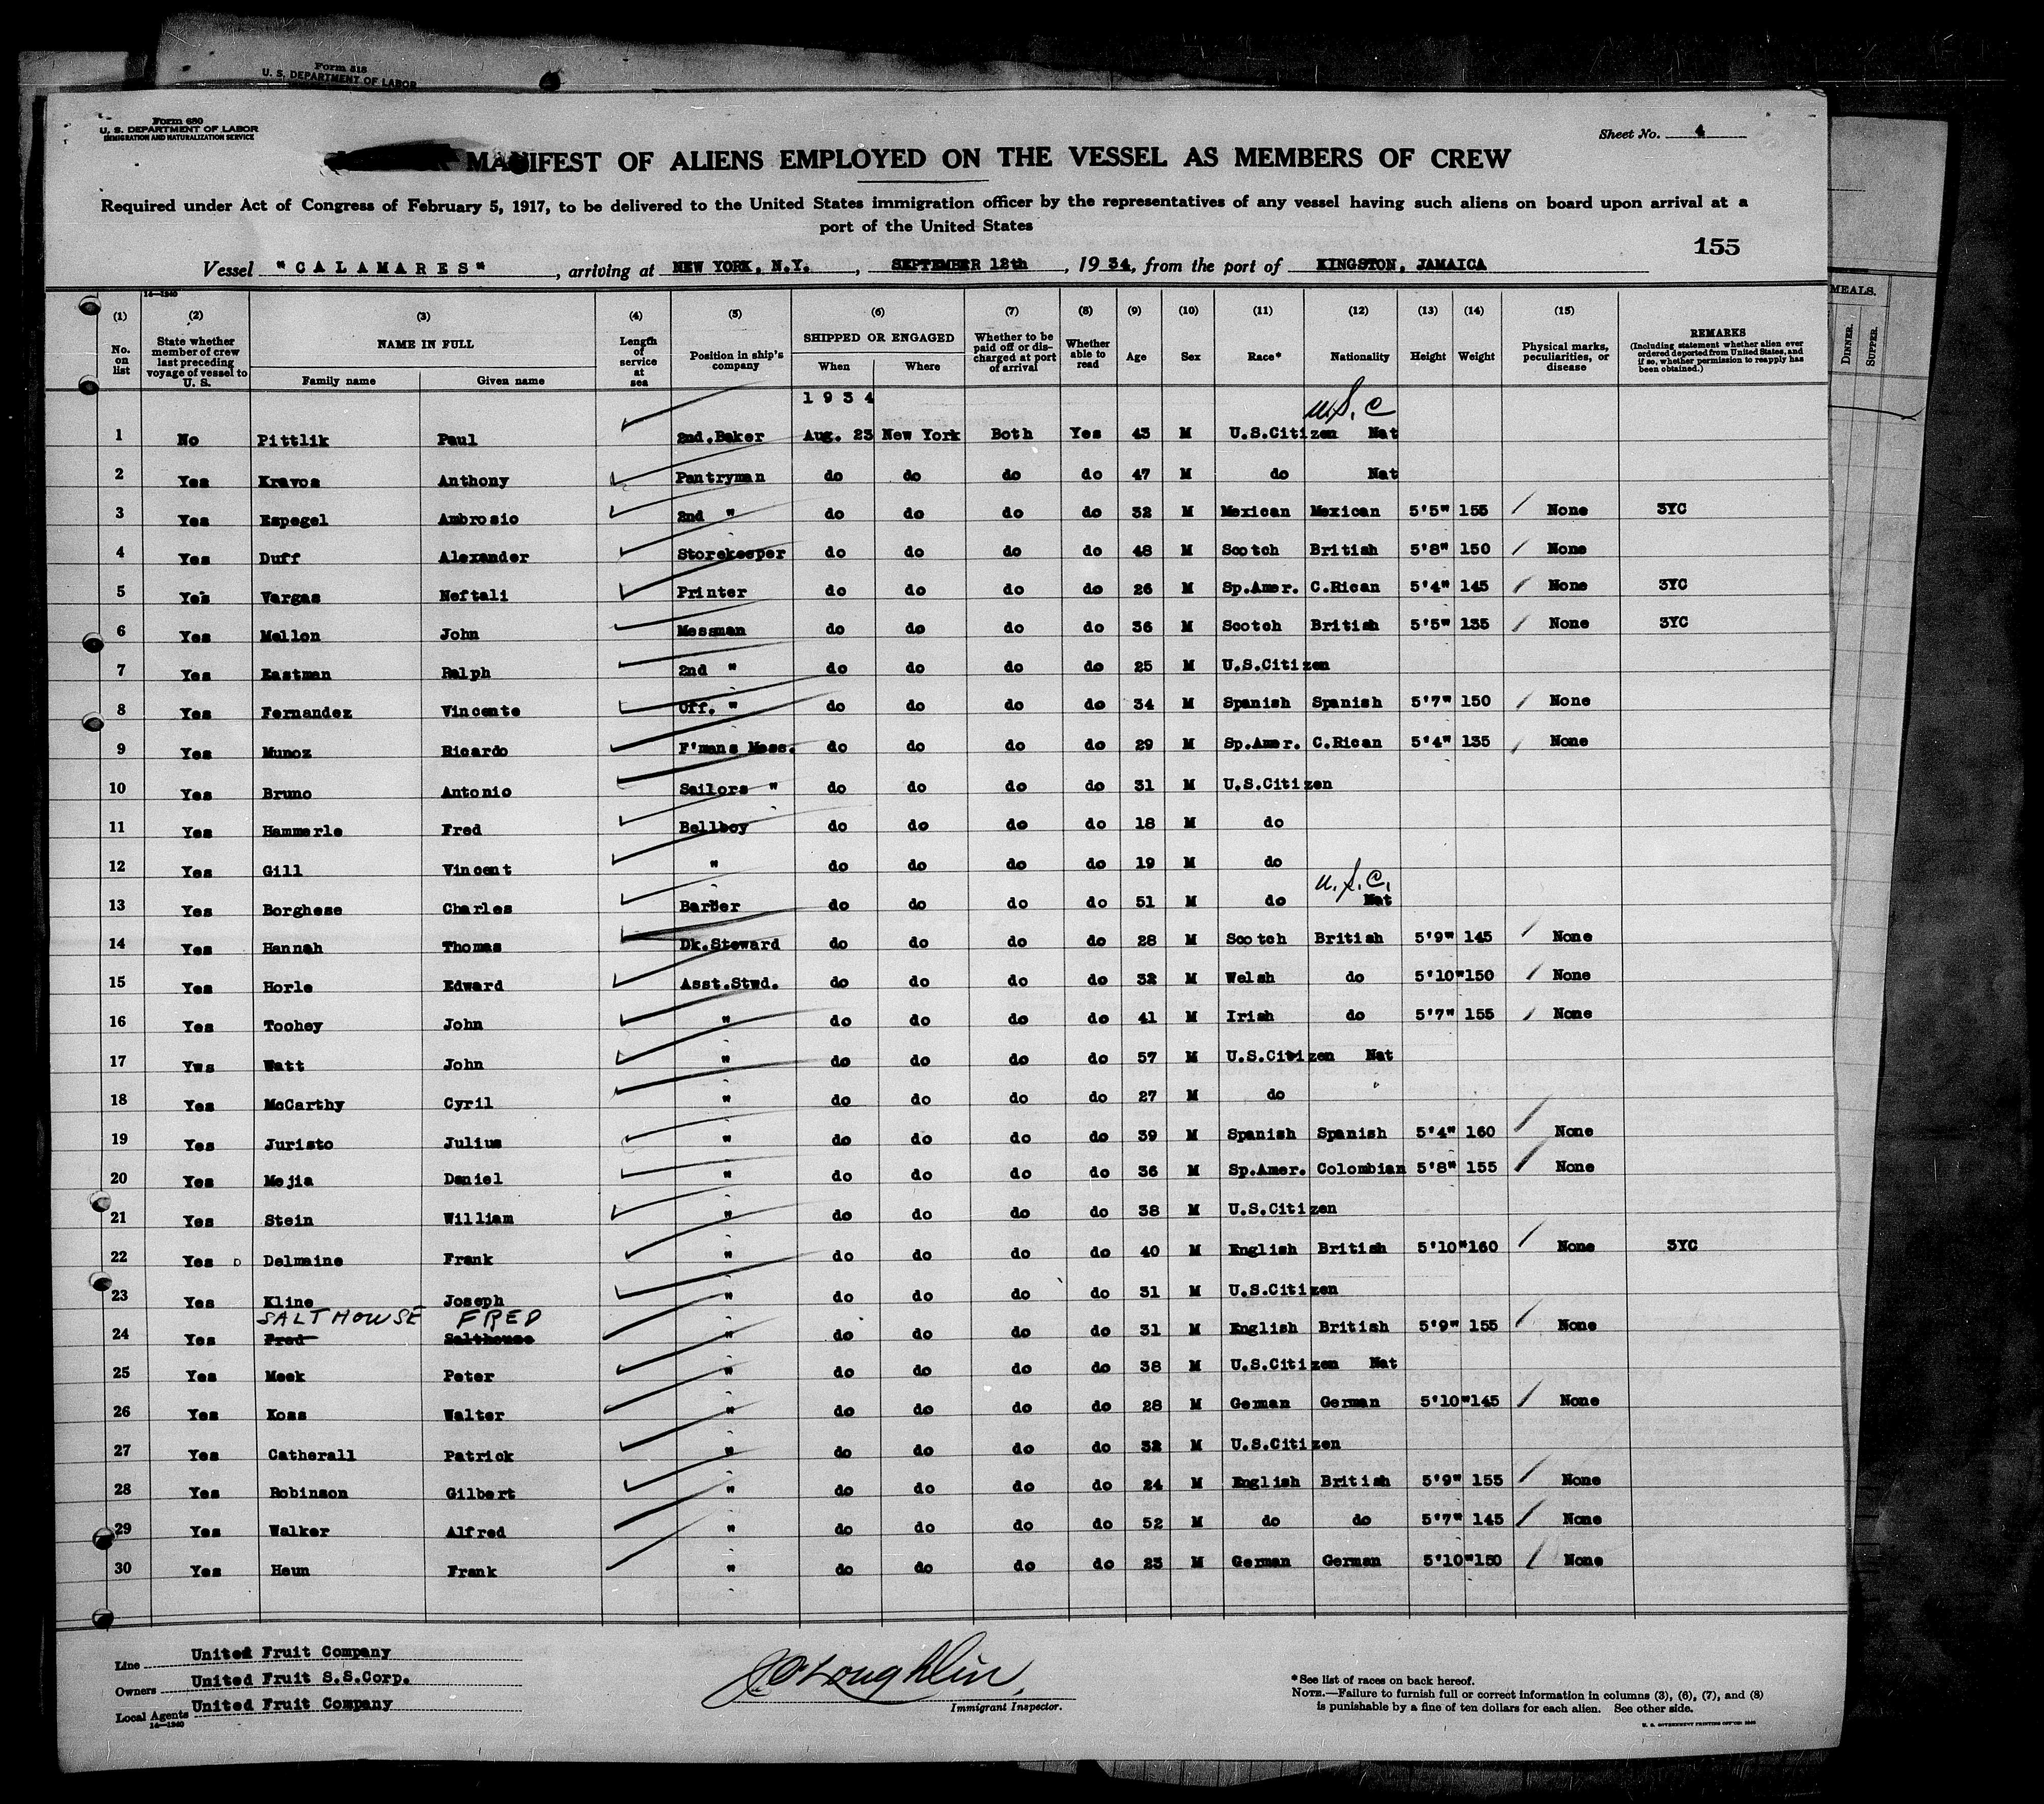 Form 518
U. S. DEPARTMENT OF LABOR
Form 680
U. S. DEPARTMENT OF LABOR
IMMIGRATION AND NATURALIZATION SERVICE
Sheet No. 4
MANIFEST OF ALIENS EMPLOYED ON THE VESSEL AS MEMBERS OF CREW
Required under Act of Congress of February 5, 1917, to be delivered to the United States immigration officer by the representatives of any vessel having such aliens on board upon arrival at a
port of the United States
155
Vessel "CALAMARES", arriving at NEW YORK, N.Y., SEPTEMBER 12th, 1934, from the port of KINGSTON, JAMAICA
14—1940
(1) (2) (3) (4) (5) (6) (7) (8) (9) (10) (11) (12) (13) (14) (15)
No. on list State whether member of crew last preceding voyage of vessel to U. S. NAME IN FULL Family name Given name Length of service at sea Position in ship's company SHIPPED OR ENGAGED When Where Whether to be paid off or discharged at port of arrival Whether able to read Age Sex Race* Nationality Height Weight Physical marks, peculiarities, or disease REMARKS (Including statement whether alien ever ordered deported from United States, and if so, whether permission to reapply has been obtained.)
MEALS.
DINNER.
SUPPER.
1934
U.S.C
1 No Pittlik Paul 2nd.Baker Aug. 23 New York Both Yes 43 M U.S.Citizen Nat
2 Yes Kravos Anthony Pantryman do do do do 47 M do Nat
3 Yes Espegel Ambrosio 2nd " do do do do 32 M Mexican Mexican 5'5" 155 None 3YC
4 Yes Duff Alexander Storekeeper do do do do 48 M Scotch British 5'8" 150 None
5 Yes Vargas Neftali Printer do do do do 26 M Sp.Amer. C.Rican 5'4" 145 None 3YC
6 Yes Mellon John Messman do do do do 36 M Scotch British 5'5" 135 None 3YC
7 Yes Eastman Ralph 2nd " do do do do 25 M U.S.Citizen
8 Yes Fernandez Vincente Off. " do do do do 34 M Spanish Spanish 5'7" 150 None
9 Yes Munoz Ricardo F'mans Mess. do do do do 29 M Sp.Amer. C.Rican 5'4" 135 None
10 Yes Bruno Antonio Sailors " do do do do 31 M U.S.Citizen
11 Yes Hammerle Fred Bellboy do do do do 18 M do
12 Yes Gill Vincent " do do do do 19 M do
U.S.C.
13 Yes Borghese Charles Barber do do do do 51 M do Nat
14 Yes Hannah Thomas Dk.Steward do do do do 28 M Scotch British 5'9" 145 None
15 Yes Horle Edward Asst.Stwd. do do do do 32 M Welsh do 5'10" 150 None
16 Yes Toohey John " do do do do 41 M Irish do 5'7" 155 None
17 Yws Watt John " do do do do 57 M U.S.Citizen Nat
18 Yes McCarthy Cyril " do do do do 27 M do
19 Yes Juristo Julius " do do do do 39 M Spanish Spanish 5'4" 160 None
20 Yes Mejia Daniel " do do do do 36 M Sp.Amer. Colombian 5'8" 155 None
21 Yes Stein William " do do do do 38 M U.S.Citizen
22 Yes Delmaine Frank " do do do do 40 M English British 5'10" 160 None 3YC
23 Yes Kline Joseph " do do do do 31 M U.S.Citizen
SALTHOUSE FRED
24 Yes Fred Salthouse " do do do do 31 M English British 5'9" 155 None
25 Yes Meek Peter " do do do do 38 M U.S.Citizen Nat
26 Yes Koss Walter " do do do do 28 M German German 5'10" 145 None
27 Yes Catherall Patrick " do do do do 32 M U.S.Citizen
28 Yes Robinson Gilbert " do do do do 24 M English British 5'9" 155 None
29 Yes Walker Alfred " do do do do 52 M do do 5'7" 145 None
30 Yes Heun Frank " do do do do 23 M German German 5'10" 150 None
Line United Fruit Company
Owners United Fruit S.S.Corp.
Local Agents United Fruit Company
14—1940
J. O'Loughlin.
Immigrant Inspector.
*See list of races on back hereof.
NOTE.—Failure to furnish full or correct information in columns (3), (6), (7), and (8)
is punishable by a fine of ten dollars for each alien. See other side.